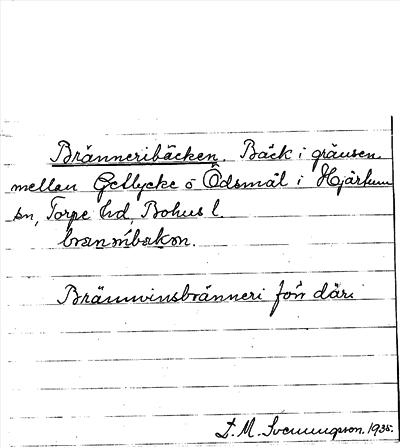 Bränneribäcken. Bäck i gränsen
mellan Getlycke o Ödsmål i Hjärtum
sn, Torpe hd, Bohus l.
Brännvinsbränneri förr där.
J. M. Svenningsson. 1935.